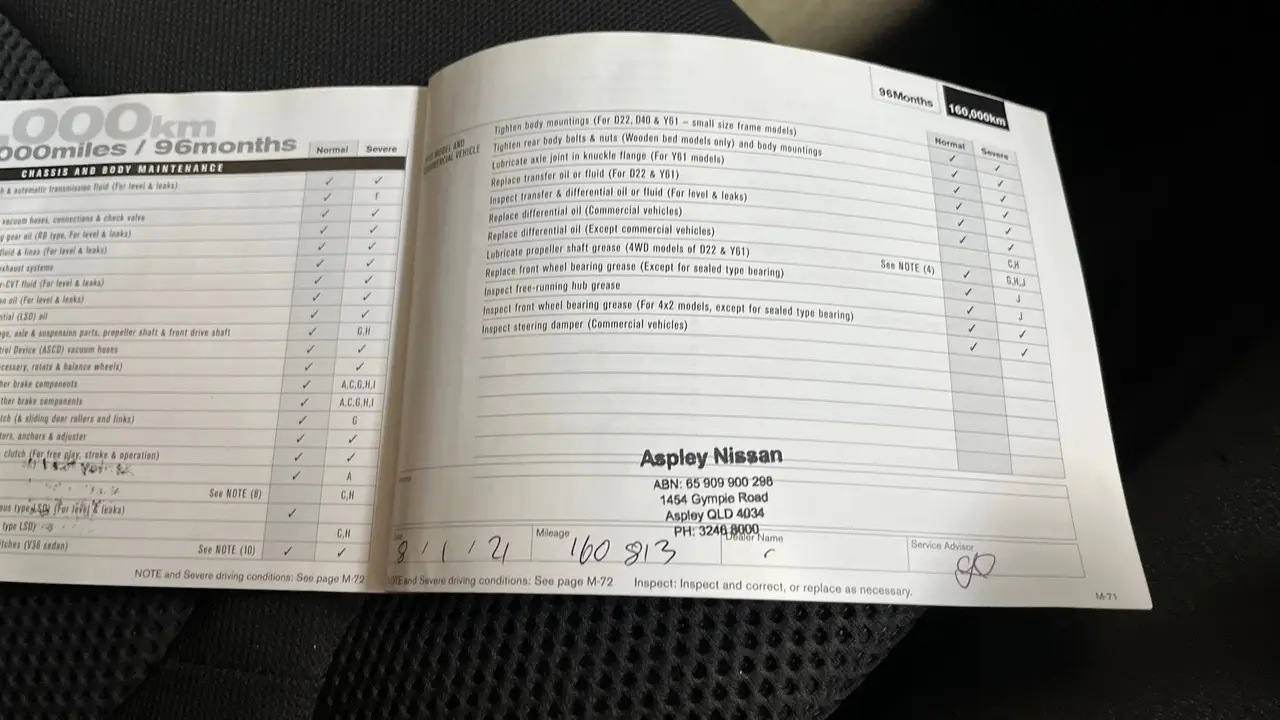 ,000km
000miles / 96months
Normal Severe
CHASSIS AND BODY MAINTENANCE
& automatic transmission fluid (For level & leaks) ✓ ✓
✓ F
vacuum hoses, connections & check valve ✓ ✓
gear oil (RB type, For level & leaks) ✓ ✓
fluid & lines (For level & leaks) ✓ ✓
exhaust systems ✓ ✓
-CVT fluid (For level & leaks) ✓ ✓
oil (For level & leaks) ✓ ✓
(LSD) oil ✓ ✓
axle & suspension parts, propeller shaft & front drive shaft ✓ G,H
Device (ASCD) vacuum hoses ✓ ✓
rotate & balance wheels) ✓ ✓
brake components ✓ A,C,G,H,I
brake components ✓ A,C,G,H,I
(& sliding door rollers and links) ✓ G
anchors & adjuster ✓ ✓
clutch (For free play, stroke & operation) ✓ ✓
✓ A
See NOTE (8) C,H
(For level & leaks) ✓
type LSD) C,H
(V36 sedan) See NOTE (10) ✓ ✓
NOTE and Severe driving conditions: See page M-72
96Months 160,000km
Normal Severe
MODEL AND
COMMERCIAL VEHICLE
Tighten body mountings (For D22, D40 & Y61 – small size frame models) ✓ ✓
Tighten rear body bolts & nuts (Wooden bed models only) and body mountings ✓ ✓
Lubricate axle joint in knuckle flange (For Y61 models) ✓ ✓
Replace transfer oil or fluid (For D22 & Y61) ✓ ✓
Inspect transfer & differential oil or fluid (For level & leaks) ✓ ✓
Replace differential oil (Commercial vehicles) ✓ C,H
Replace differential oil (Except commercial vehicles) See NOTE (4) G,H,J
Lubricate propeller shaft grease (4WD models of D22 & Y61) ✓ J
Replace front wheel bearing grease (Except for sealed type bearing) ✓ J
Inspect free-running hub grease ✓ ✓
Inspect front wheel bearing grease (For 4x2 models, except for sealed type bearing) ✓ ✓
Inspect steering damper (Commercial vehicles) ✓
Aspley Nissan
ABN: 65 909 900 298
1454 Gympie Road
Aspley QLD 4034
PH: 3246 8000
Mileage Dealer Name Service Advisor
8 / 1 / 21 160 813
and Severe driving conditions: See page M-72 Inspect: Inspect and correct, or replace as necessary.
M-71